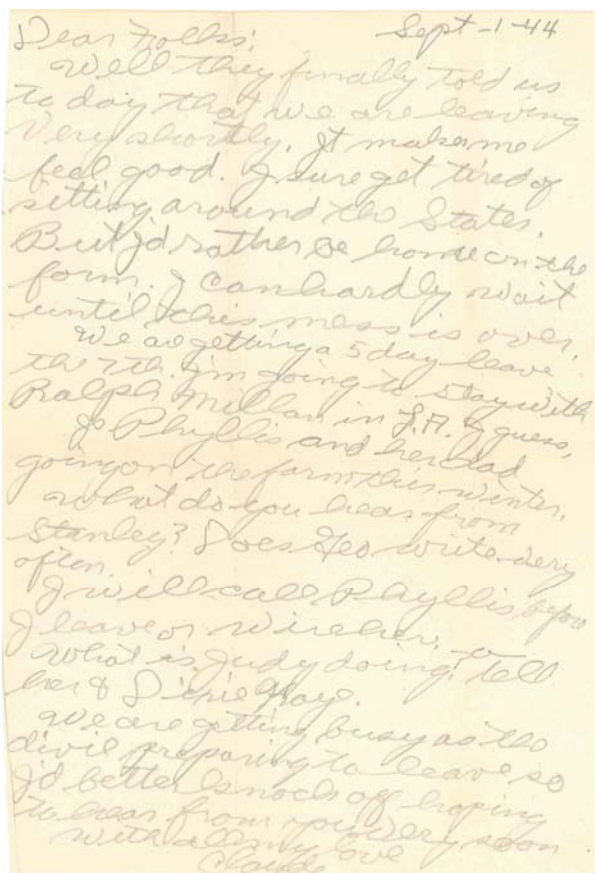 Sept-1-44
Dear Folks;
Well they finally told us
to day that we are leaving
very shortly. It makes me
feel good. I sure get tired of
sitting around the States.
But I'd rather be home on the
farm. I can hardly wait
until this mess is over.
We are getting a 5 day leave
the 7th. I'm going to stay with
Ralph Millan in L.A. I guess.
Is Phyllis and her dad
going on the farm this winter.
What do you hear from
Stanley? Does Geo write very
often.
I will call Phyllis before
I leave or wire her.
What is Judy doing? Tell
her & Dixie Hay e.
We are getting busy as the
divil preparing to leave so
I'd better knock off hoping
to hear from you very soon.
with all my love
Claude